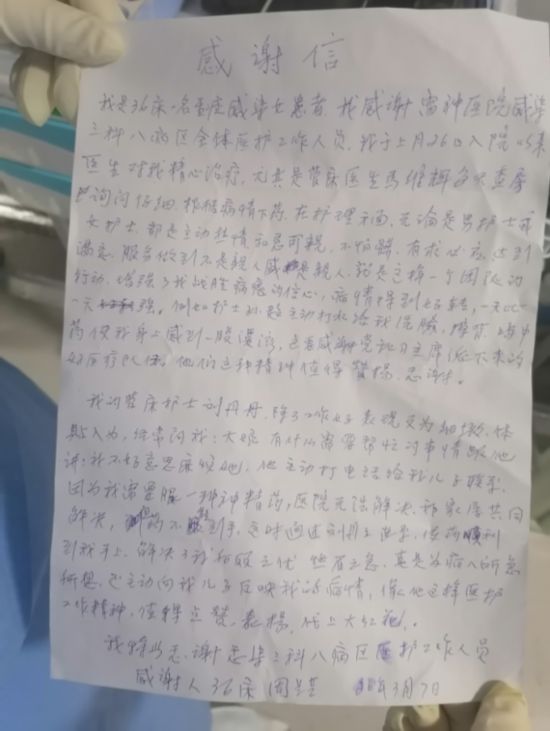 感谢信
我是36床一名重症感染女患者，我感谢雷神医院感染
三科八病区全体医护工作人员，我于上月26日入院以来
医生对我精心治疗，尤其是管床医生马维辉每天查房
询问仔细，根据病情下药，在护理方面，无论是男护士或
女护士，都是主动热情和蔼可亲，不怕脏，有求必应，达到
满意，服务做到不是亲人胜是亲人，就是这样一个团队的
行动，增强了我战胜病魔的信心，病情得到好转，一天比
一天强，例如护士 主动打水给我洗脸，擦
药使我身上感到一股暖流，这首感谢党和习主席派下来的
好医疗队伍，他们这种精神值得赞扬，感谢。
我的管床护士刘丹丹，除了工作好表现更为细致，体
贴入为，经常问我：大娘有什么需要帮忙的事情跟他
讲，我不好意思麻烦她，他主动打电话给我儿子联系，
因为我需要服一种神精药，医院无法解决，那家属共同
解决， 药不 到手，急时通过刘丹 ，使药顺利
到我手上，解决了我后顾之忧 燃眉之急，真是为病人所急
所想，还主动向我儿子反映我的病情，像他这样医护
工作精神，值得点赞，表扬，戴上大红花。
我特此志，谢感染三科八病区医护工作人员
感谢人36床周 3月7日